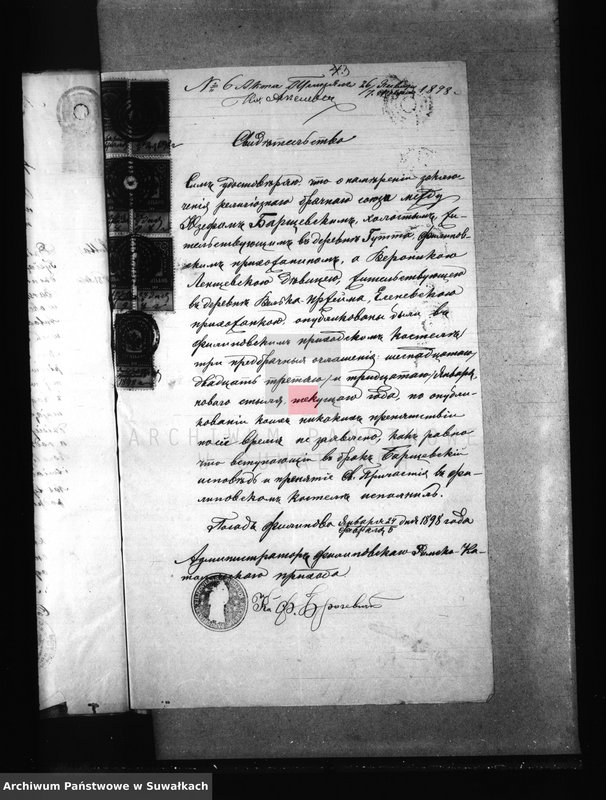 43
№ 6 Акта 26 Января 1898
7 Февраля
Свидѣтельство
Симъ удостовѣряю, что о намѣреніи заклю-
ченія религіознаго брачнаго союза между
Юзефомъ Барщевскимъ, холостымъ жи-
тельствующимъ въ деревнѣ Гутта, филиппов-
скимъ прихожаниномъ, а Вероникою
Ленцевскою дѣвицею, жительствующею
въ деревнѣ Еленевскою
прихожанкою, опубликованы были въ
филиповскомъ приходскомъ костелѣ
три предбрачныя оглашенія: шеснадцатаго,
двадцать третьяго и тридцатаго Января
новаго стиля, текущаго года, по опубли-
кованіи коихъ никакихъ препятствій
по сіе время не заявлено, какъ равно
что вступающій въ бракъ Барщевскій
исповѣдь и принятіе Св. Причастія въ фи-
липовскомъ костелѣ исполнилъ.
Посадъ Филипово Января 24 дня 1898 года
Февраля 5
Администраторъ филиповскаго Римско-Ка-
толическаго прихода
Кс. Ф.
ARCHIWUM PAŃSTWOWE
W SUWAŁKACH
Archiwum Państwowe w Suwałkach